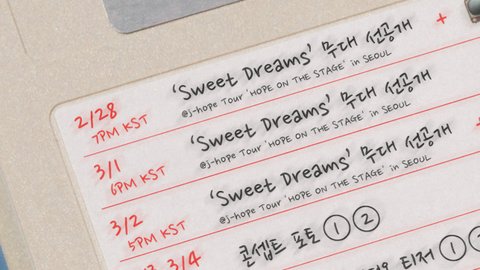 2/28
7PM KST
'Sweet Dreams' 무대 선공개
@j-hope Tour 'HOPE ON THE STAGE' in SEOUL
3/1
6PM KST
'Sweet Dreams' 무대 선공개
@j-hope Tour 'HOPE ON THE STAGE' in SEOUL
3/2
5PM KST
'Sweet Dreams' 무대 선공개
@j-hope Tour 'HOPE ON THE STAGE' in SEOUL
3/4
콘셉트 포토 ① ②
티저 ①